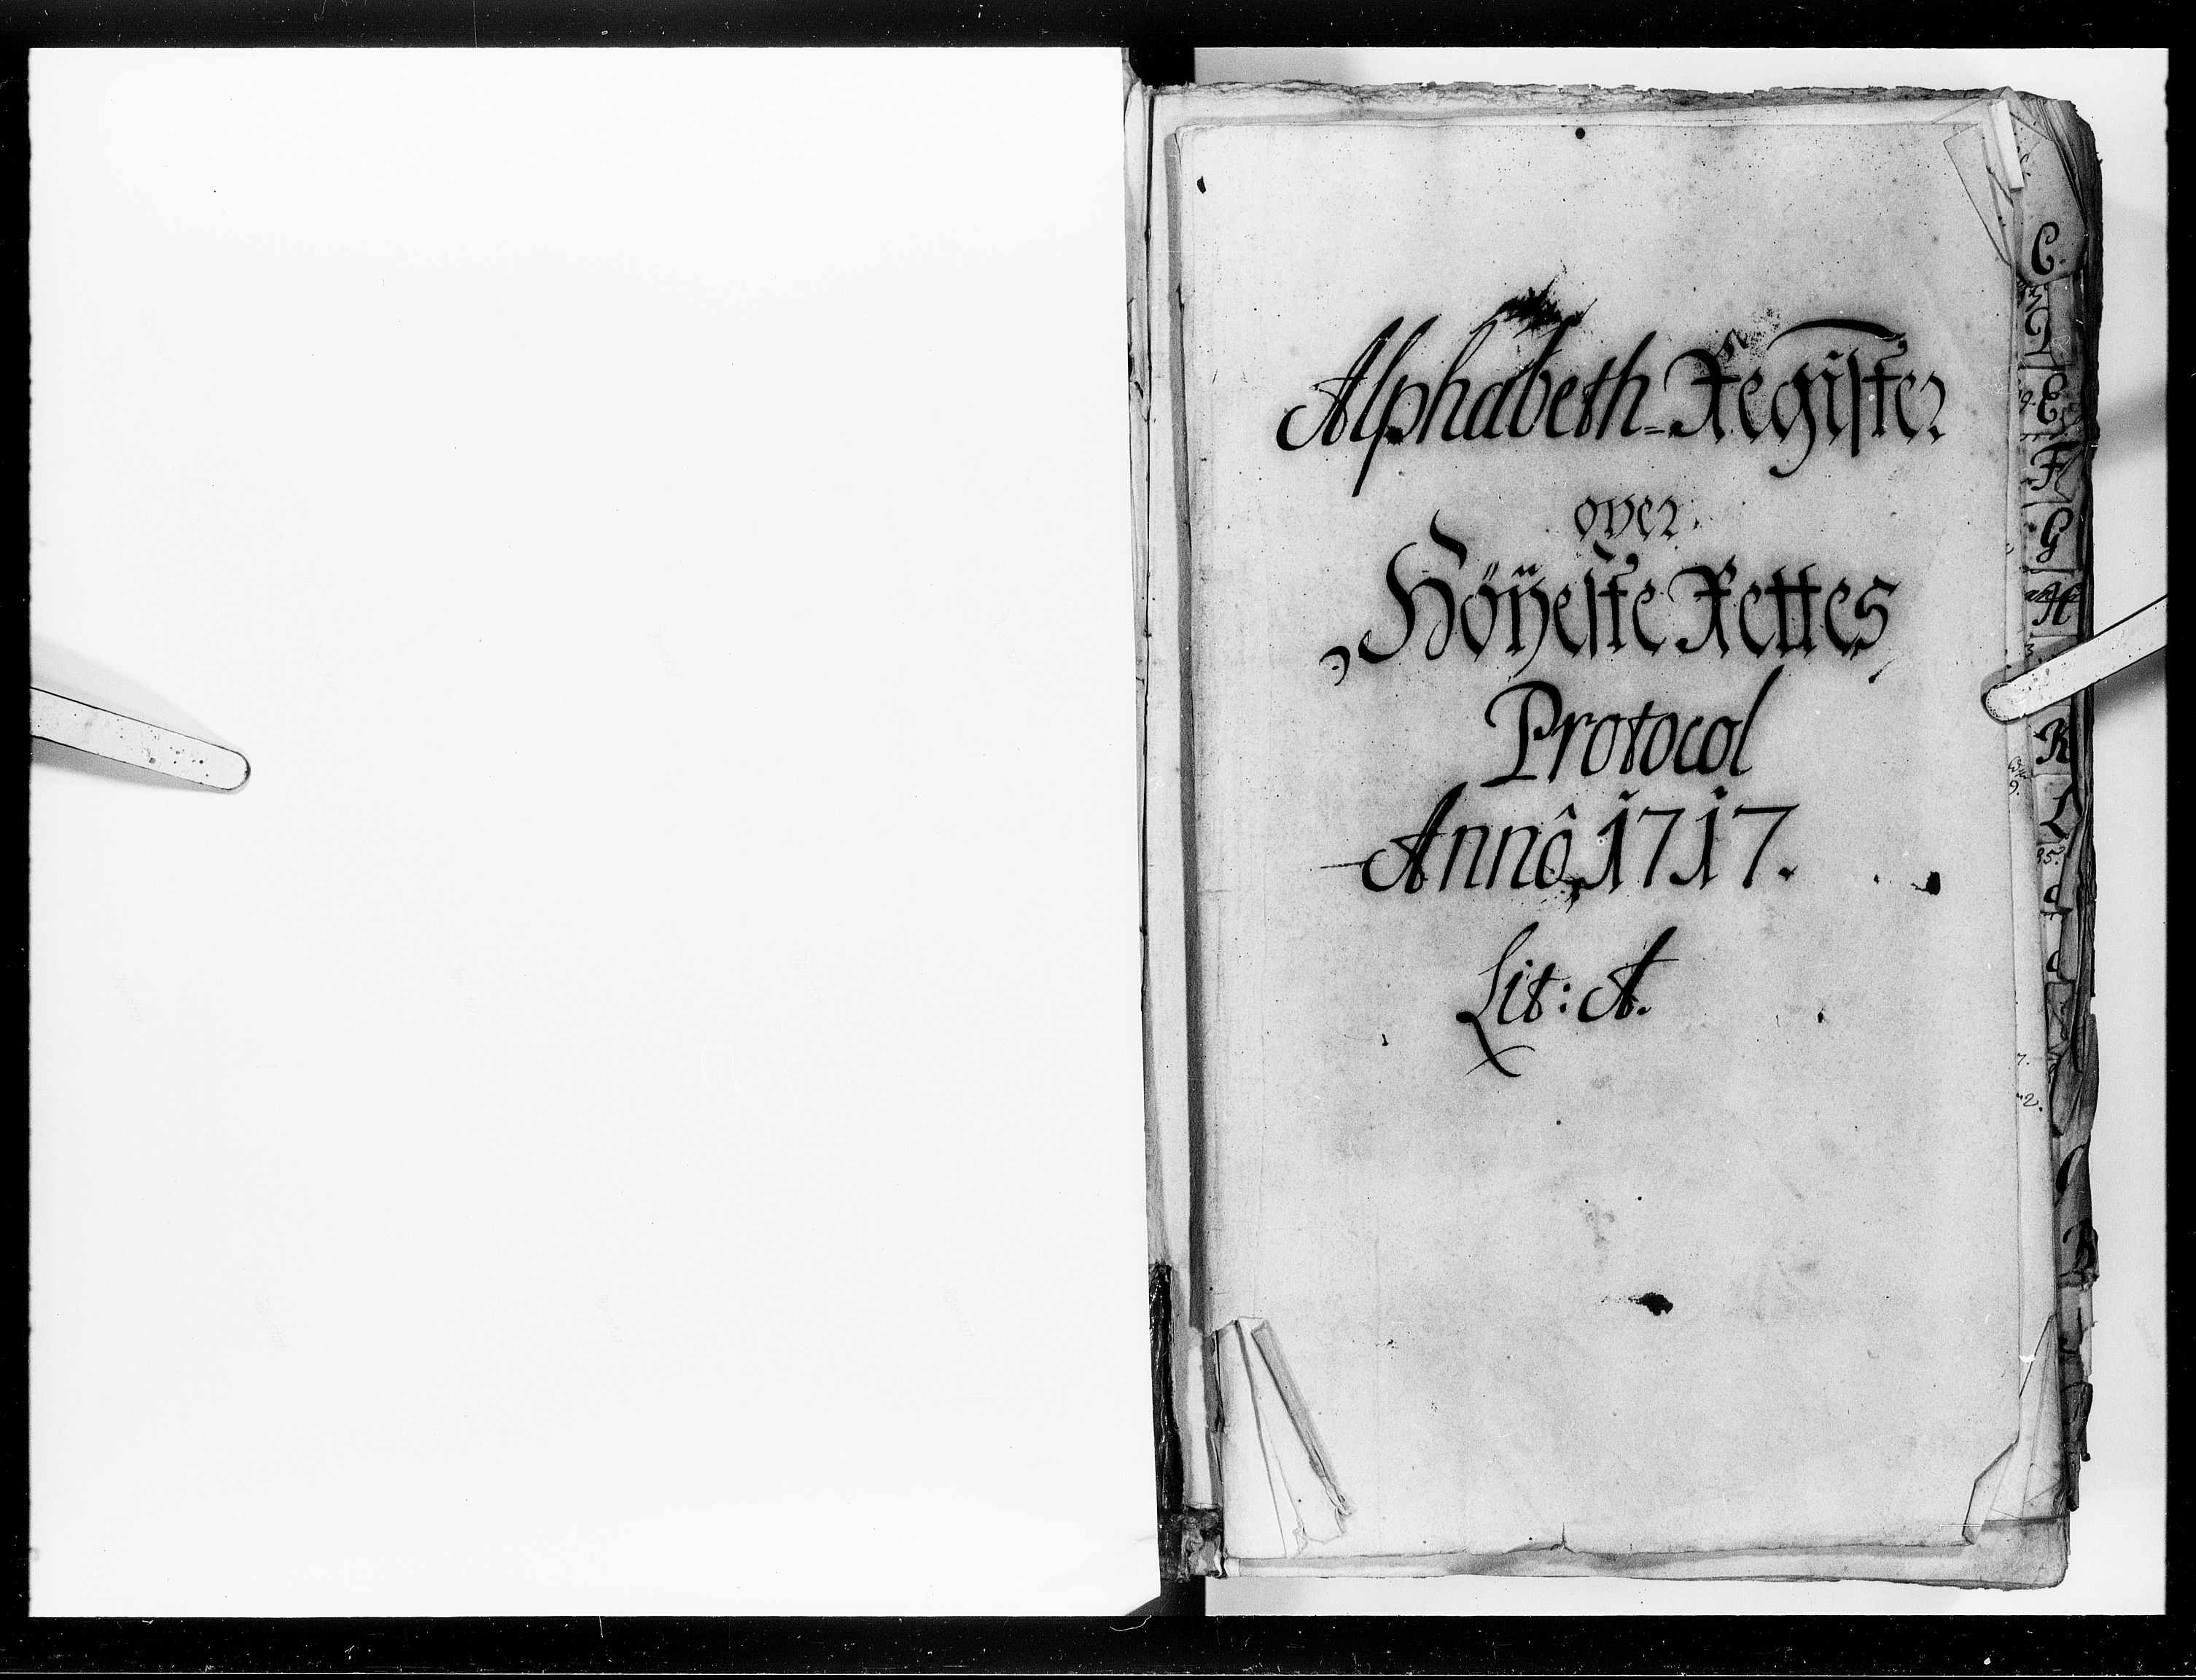 Alphabeth=Register
over
Höÿeste Rettes
Protocol
Annô 1717.
Lit: A.
C.
E
F
G
H
K
L
R